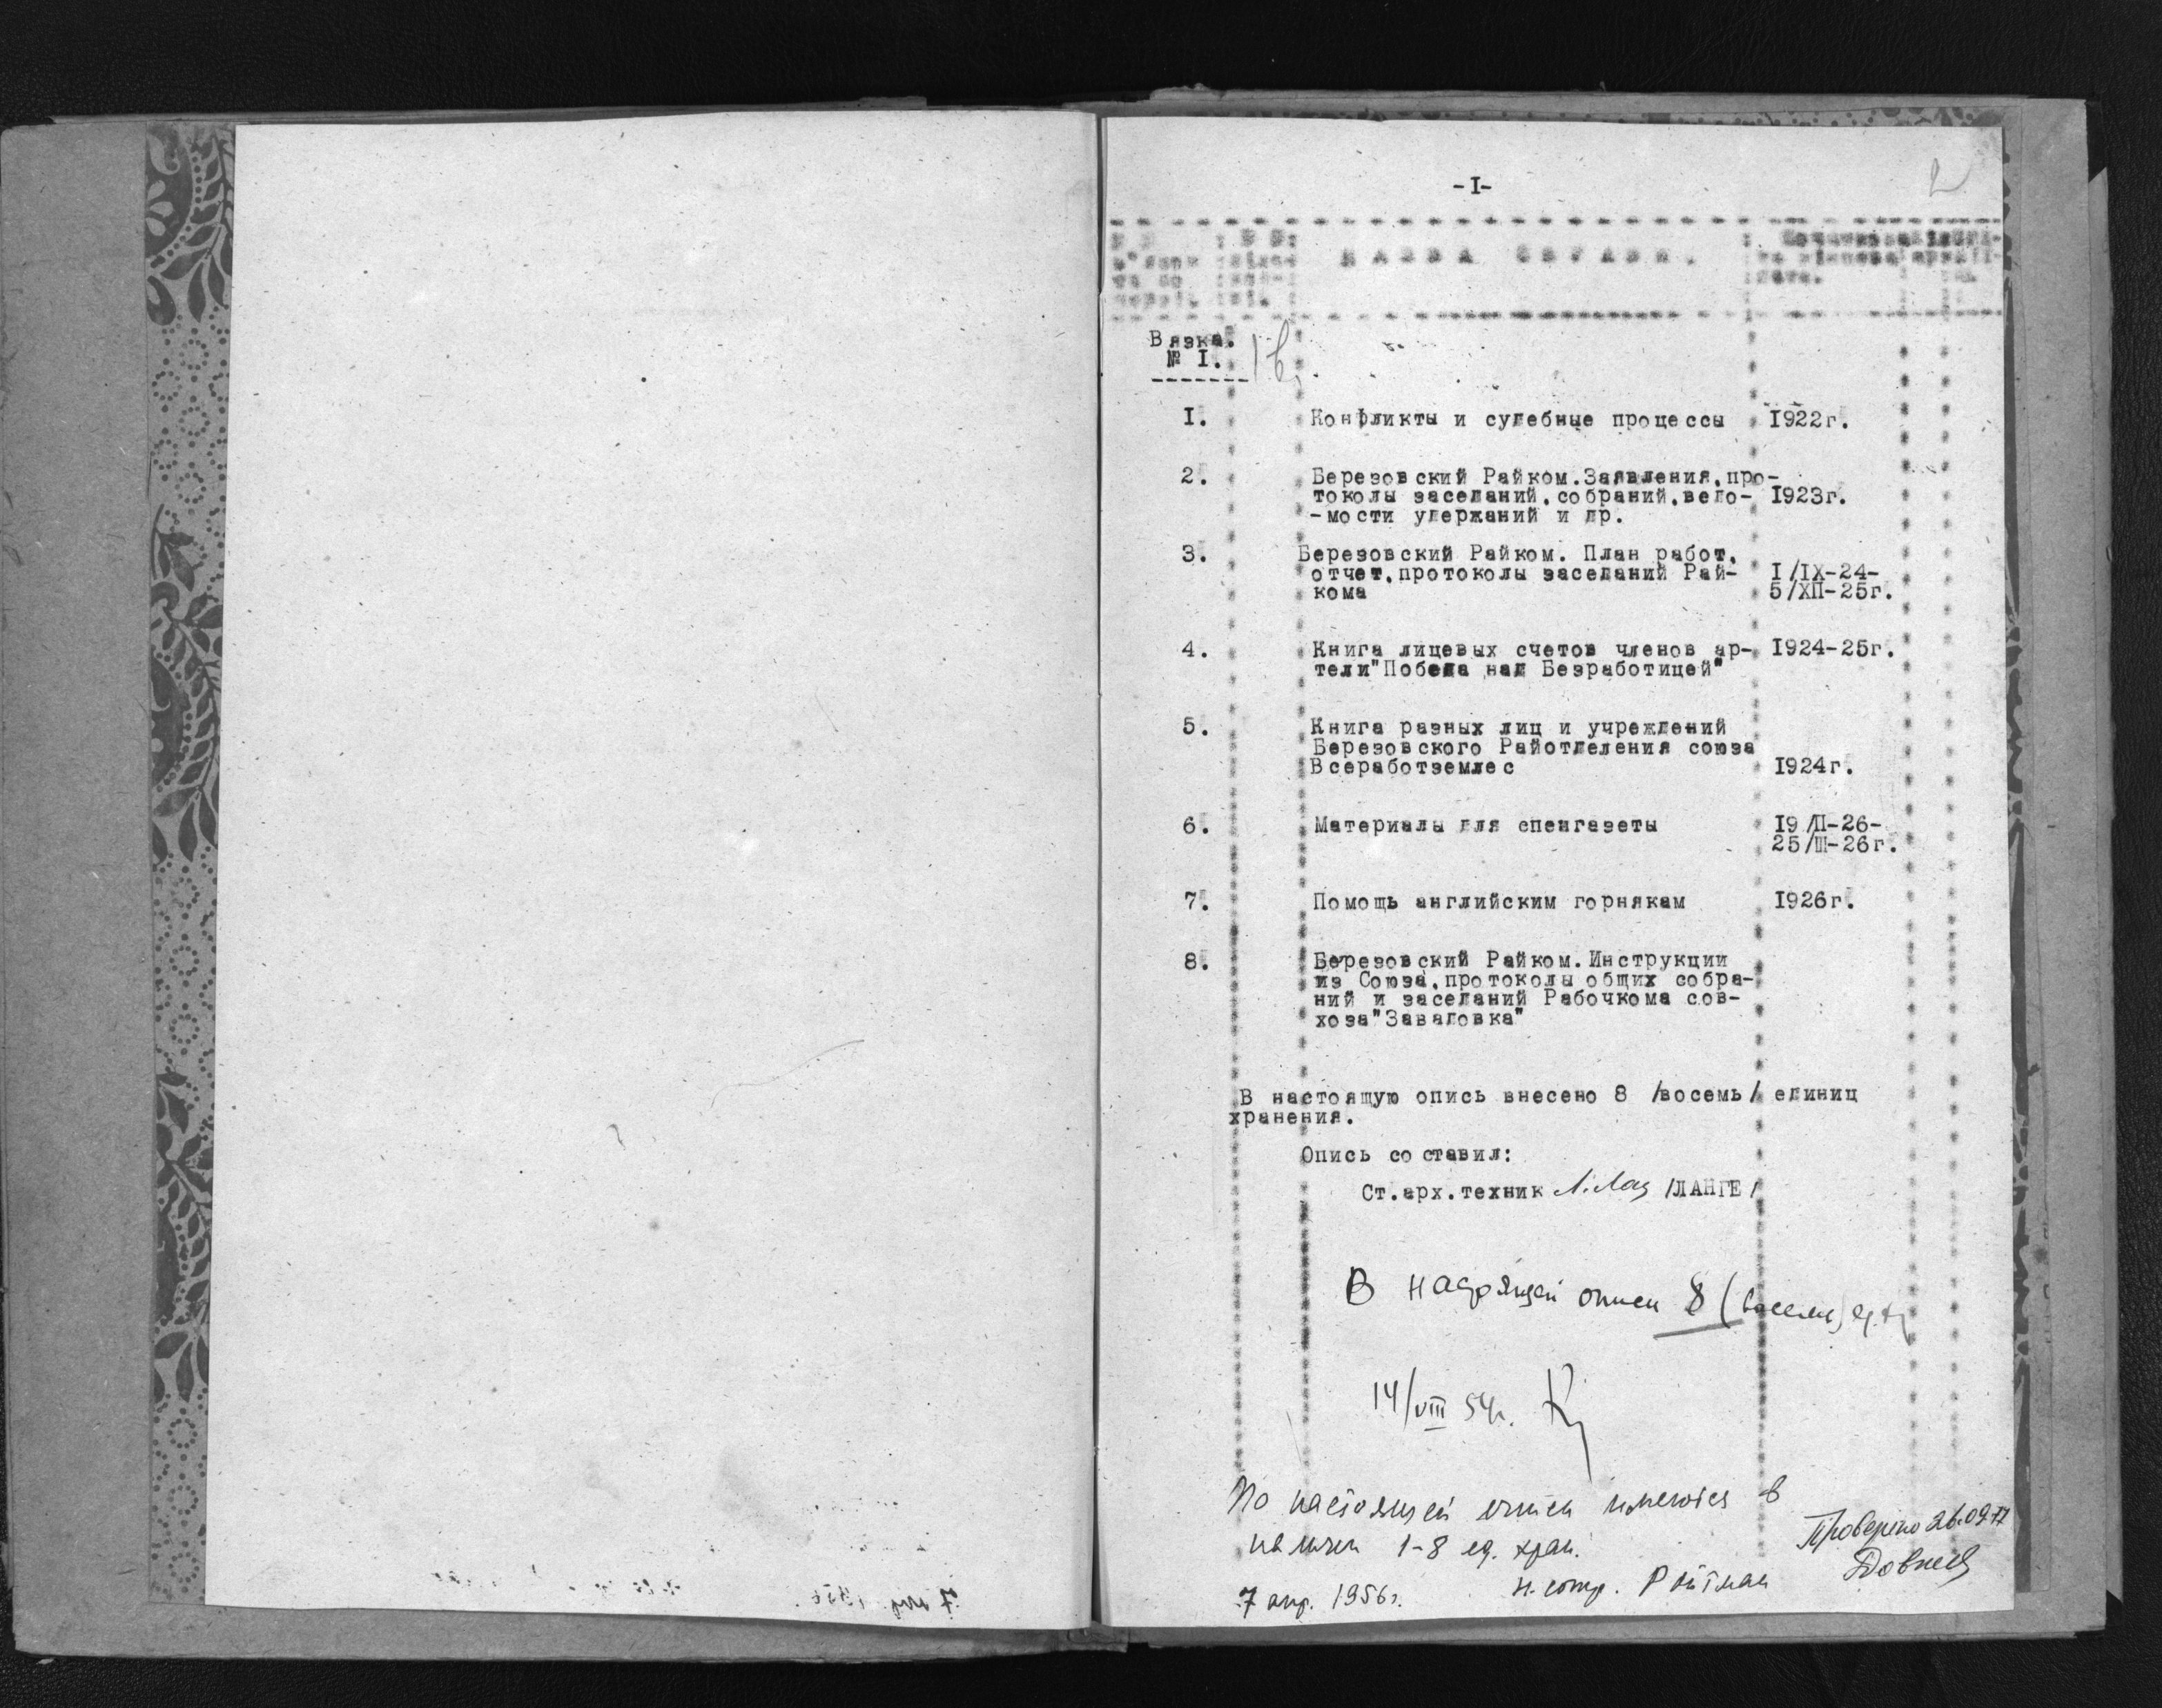 -I-
2
НАЗВА СПРАВИ.
Вязка.
№ I.
I. Конфликты и судебные процессы 1922г.
2. Березовский Райком.Заявления,про-
токолы заседаний,собраний,ведо- I923г.
-мости удержаний и др.
3. Березовский Райком. План работ,
отчет,протоколы заседаний Рай- I/IX-24-
кома 5/XII-25г.
4. Книга лицевых счетов членов ар- I924-25г.
тели"Победа над Безработицей"
5. Книга разных лиц и учреждений
Березовского Райотделения союза
Всеработземлес I924г.
6. Материалы для спенгазеты I9/II-26-
25/III-26г.
7. Помощь английским горнякам I926г.
8. Березовский Райком.Инструкции
из Союза,протоколы общих собра-
ний и заседаний Рабочкома сов-
хоза"Завадовка"
В настоящую опись внесено 8 /восемь/ единиц
хранения.
Опись составил:
Ст.арх.техник /ЛАНГЕ/
В настоящей описи 8 (восемь) ед. хр
14/VIII 54г.
По настоящей описи имеются в
наличии 1-8 ед. хран.
7 апр. 1956г. н. сотр. Ройтман
Проверено 26.09.77